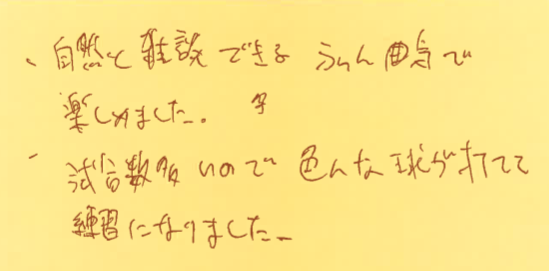 、自然と雑談できるふいん囲気で
楽しめました。
、試合数多いので色んな球が打てて
練習になりました。